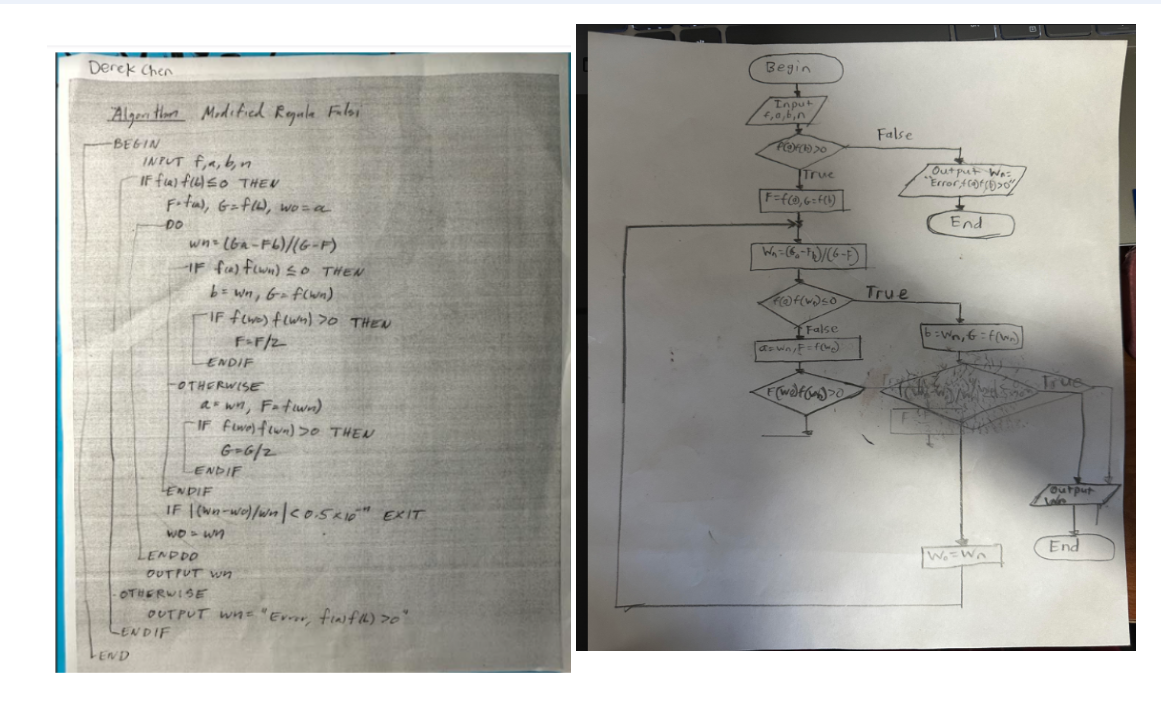 Derek Chen
Algorithm Modified Regula Falsi
BEGIN
INPUT f, a, b, n
IF f(a) f(b) ≤ 0 THEN
F=f(a), G=f(b), wo=a
DO
wn=(Ga-Fb)/(G-F)
IF f(a) f(wn) ≤ 0 THEN
b=wn, G=f(wn)
IF f(wo) f(wn) >0 THEN
F=F/2
ENDIF
OTHERWISE
a=wn, F=f(wn)
IF f(wo) f(wn) >0 THEN
G=G/2
ENDIF
ENDIF
IF |(wn-wo)/wn| < 0.5×10 EXIT
wo=wn
ENDDO
OUTPUT wn
OTHERWISE
OUTPUT wn= "Error, f(a)f(b) >0"
ENDIF
END
Begin
Input
f, a, b, n
f(a)f(b)>0
False
True
Output Wn=
"Error, f(a)f(b)>0"
End
F=f(a), G=f(b)
Wn=(Ga-Fb)/(G-F)
f(a)f(wn)≤0
True
False
b=Wn, G=f(Wn)
a=wn, F=f(wn)
F(wo)f(wn)>0
True
F
Output
Wn
End
Wo=Wn